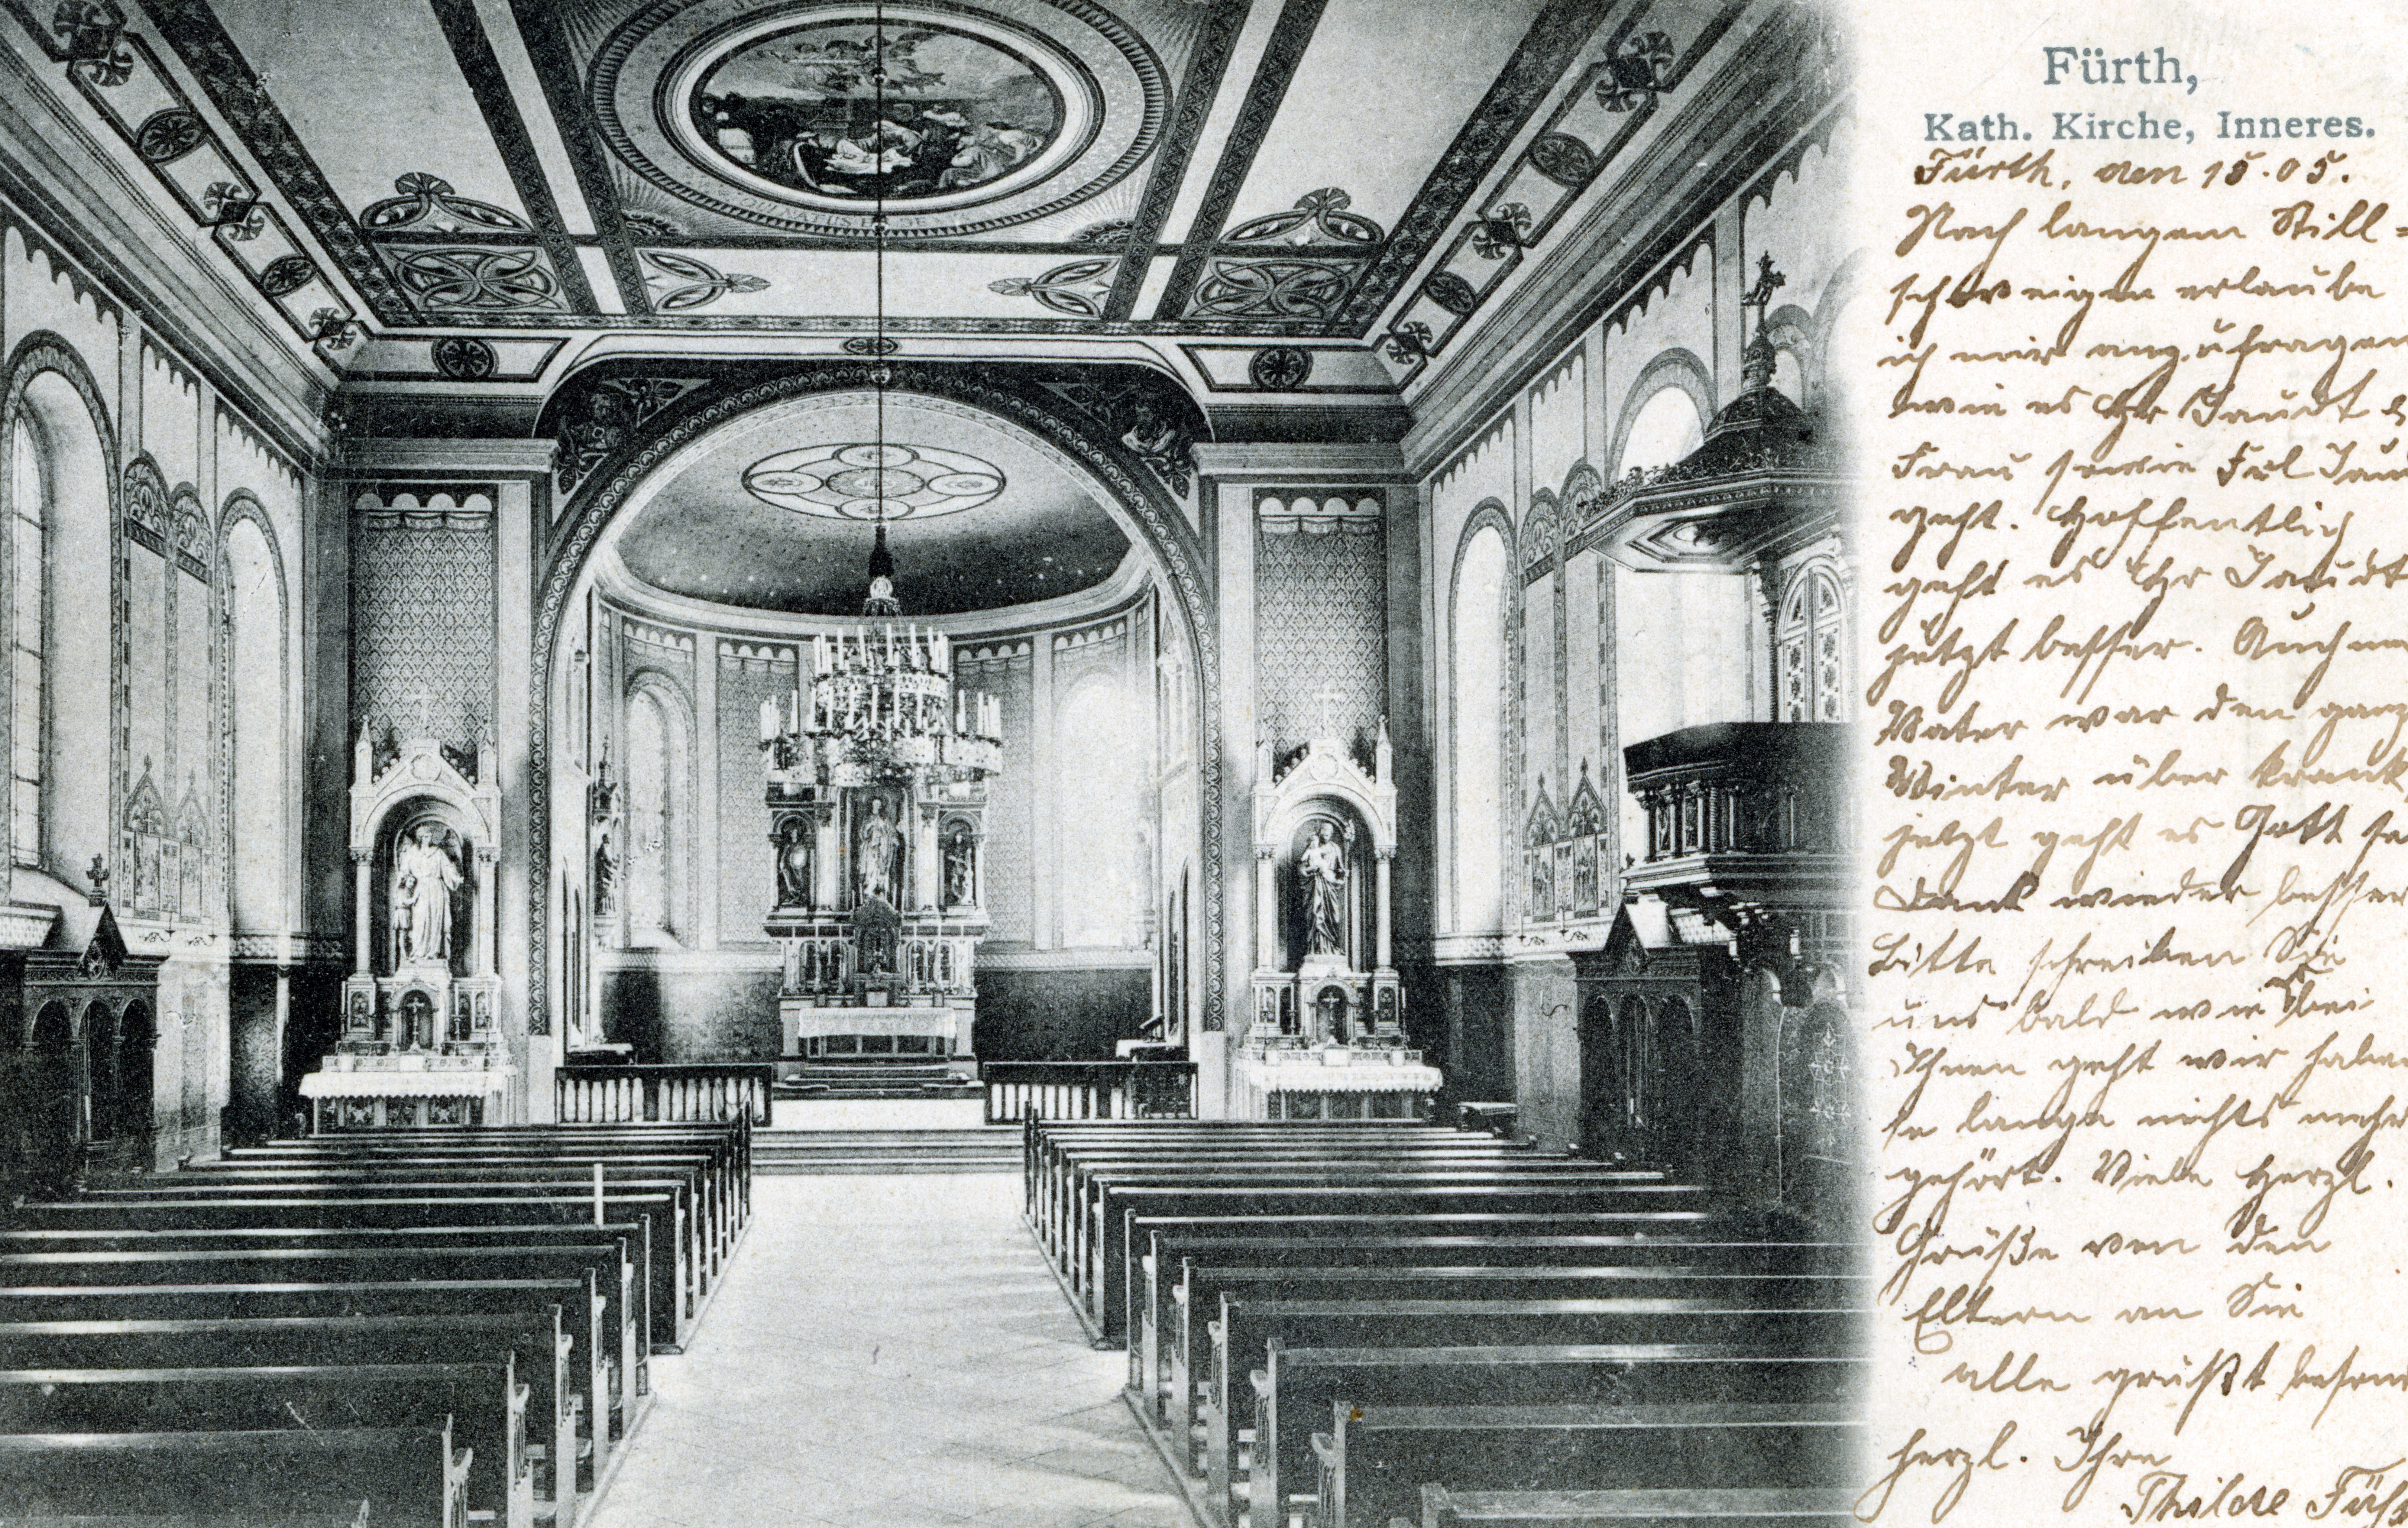 Fürth,
Kath. Kirche, Inneres.
Fürth, den 18.05.
Nach langem Still-
schweigen erlaube
ich mir anzufragen
wie es Hr Jaudt
Frau sowie Frl
geht. Hoffentlich
geht es Hr Jaudt
jetzt besser. Auch
Vater war den
Winter über krank
jetzt geht es Gott
Dank wieder besser
Bitte schreiben Sie
uns bald wie bei
Ihnen geht wir haben
so lange nichts mehr
gehört. Viele herzl.
Grüße von den
Eltern an Sie
alle grüßt
herzl. Ihre
Thilde